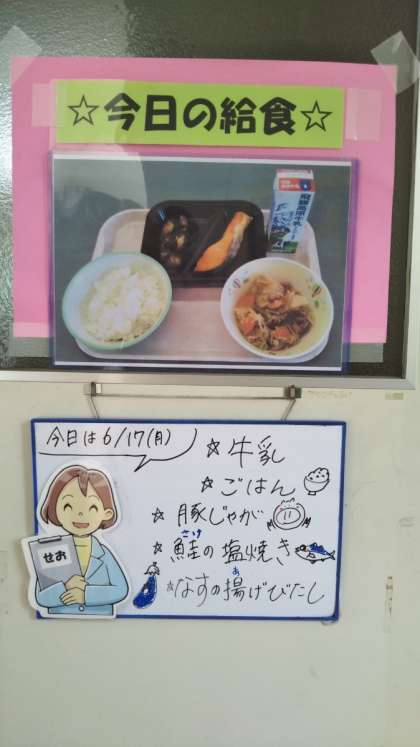 ☆今日の給食☆
飛騨高原牛乳
今日は6/17(月)
☆牛乳
☆ごはん
☆豚じゃが
さけ
☆鮭の塩焼き
あ
☆なすの揚げびたし
せお